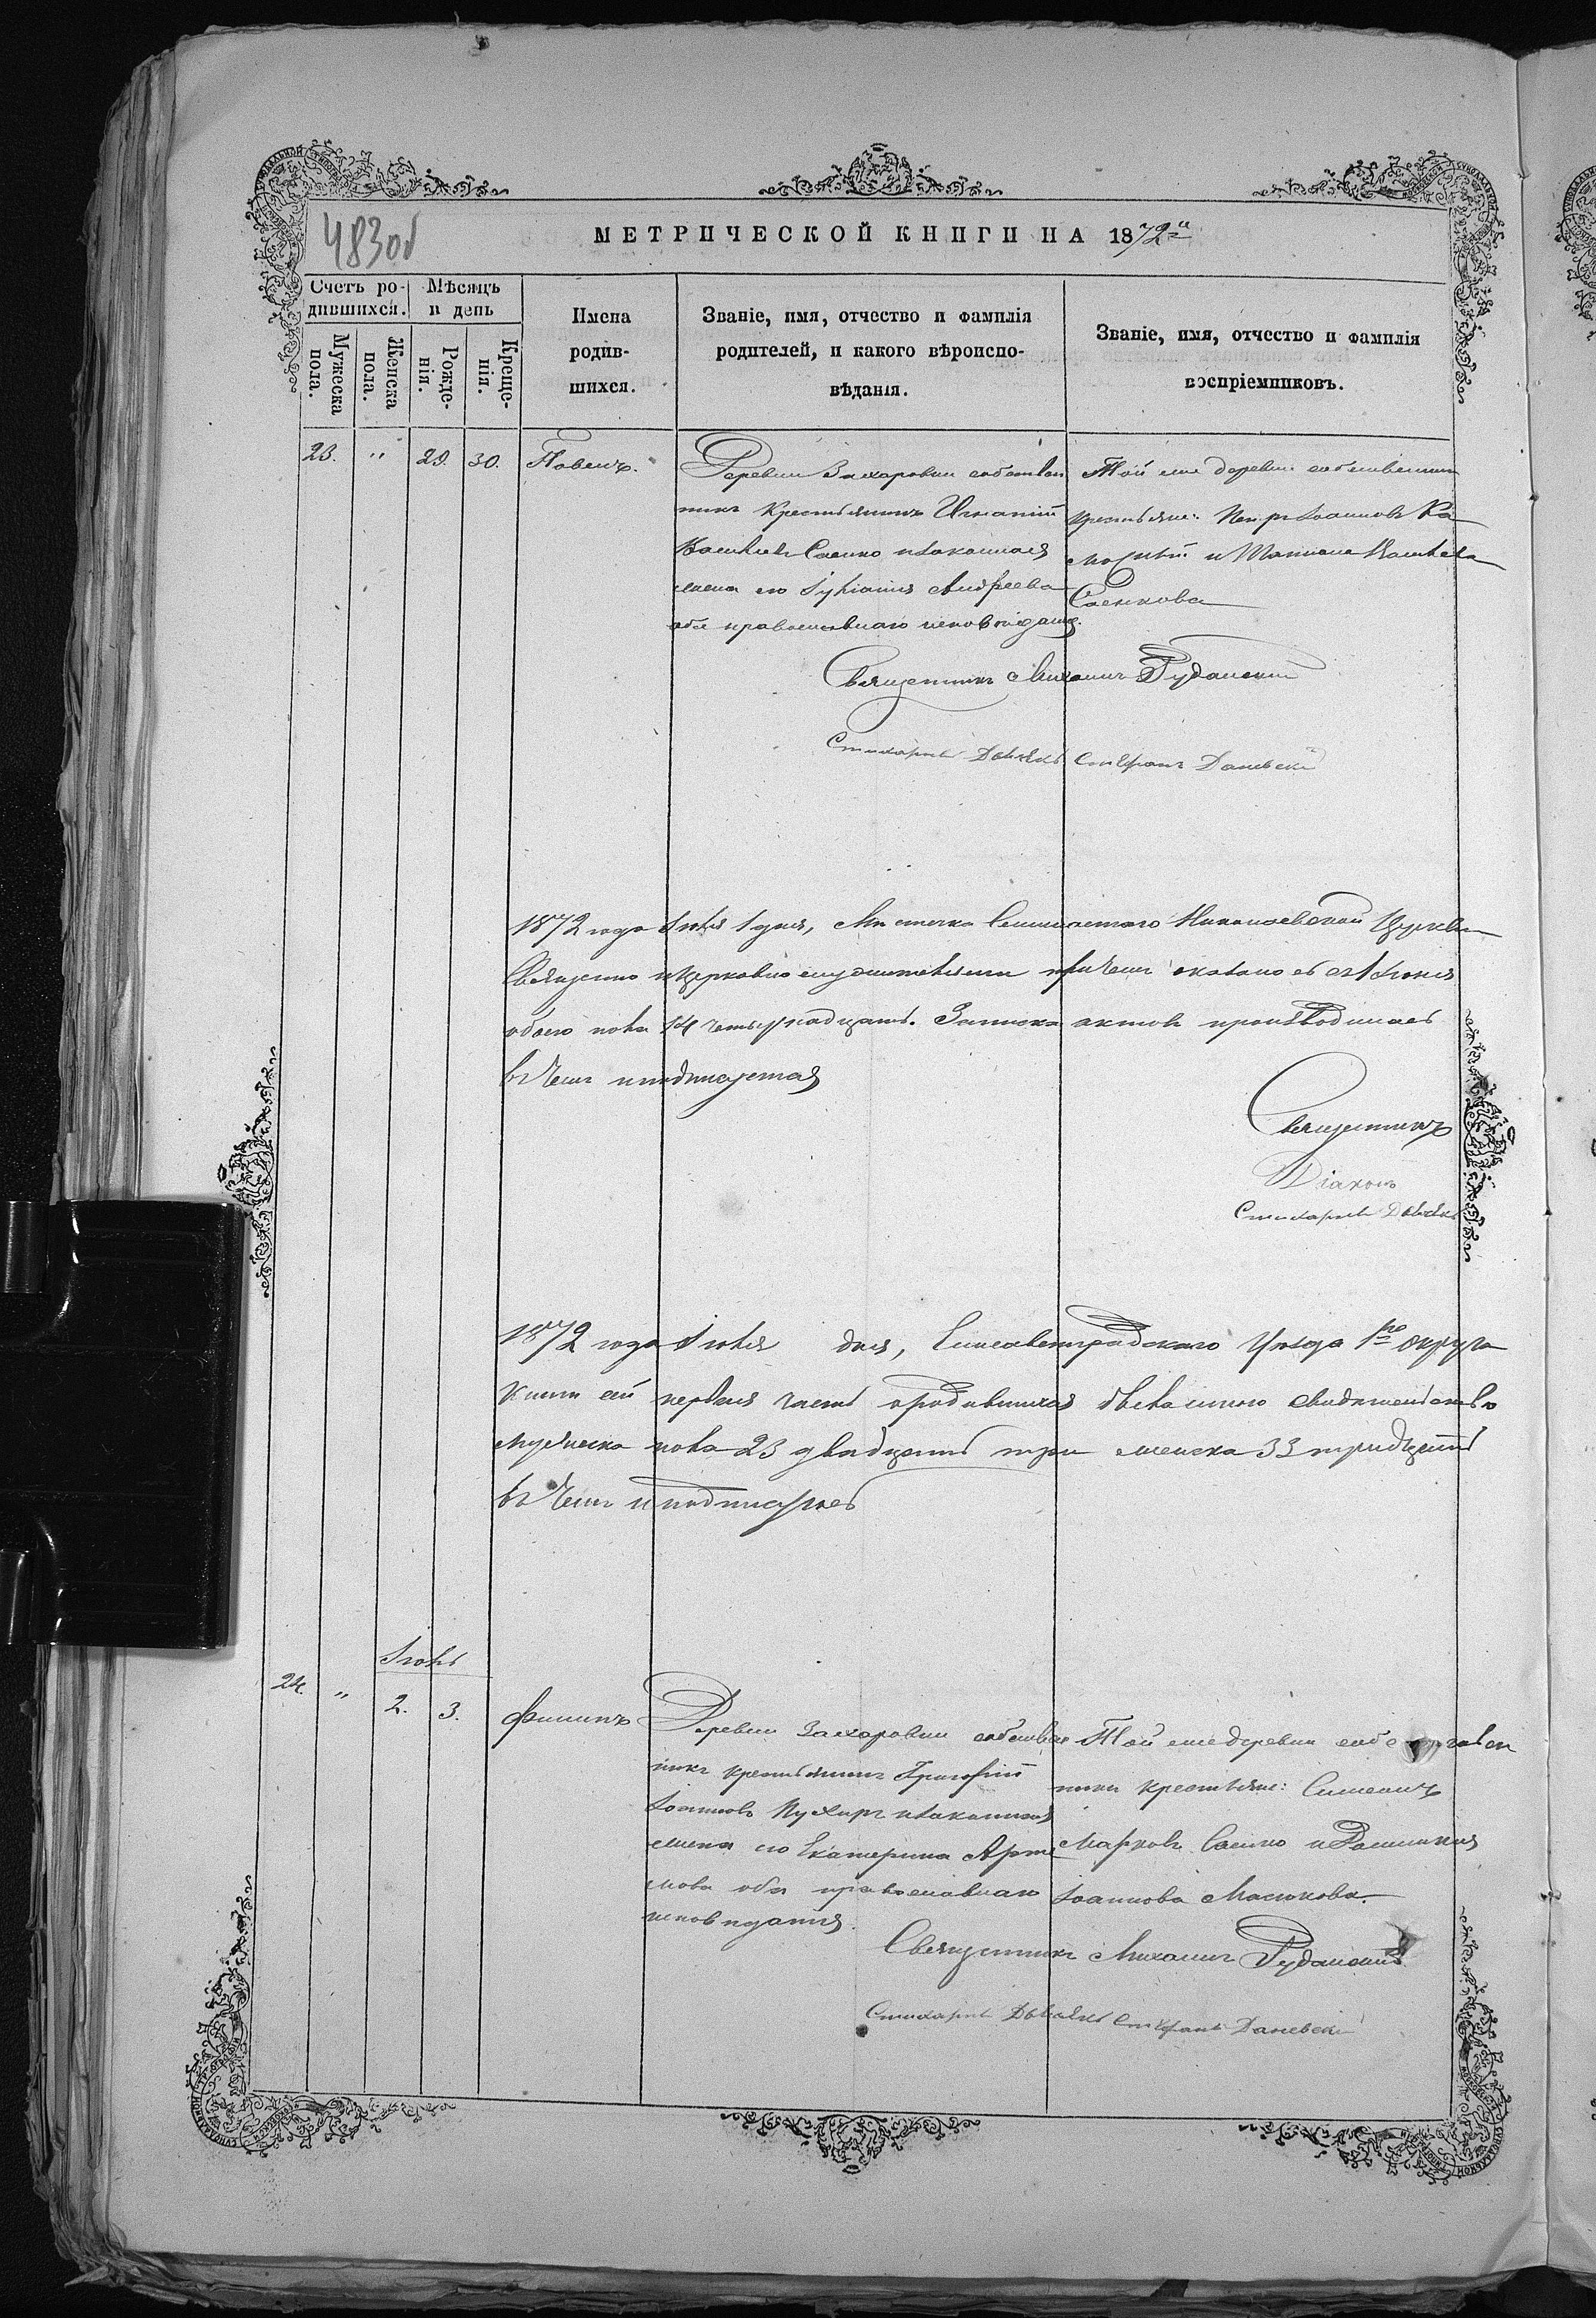 483об
МЕТРИЧЕСКОЙ КНИГИ НА 1872
Счетъ ро-
дившихся.
Мужеска
пола.
Женска
пола.
Мѣсяцъ
и день
Рожде-
нія.
Креще-
нія.
Имена
родив-
шихся.
Званіе, имя, отчество и фамилія
родителей, и какого вѣроиспо-
вѣданія.
Званіе, имя, отчество и фамилія
воспріемниковъ.
23. " 29. 30. Павелъ.
Деревни Захаровки собствен
никъ Крестьянинъ Игнатій
Саенко и законная
жена его Андреева
оба православнаго исповѣданія.
Той же деревни собственники
крестьяне: Петръ Іоанновъ
и Татиана
Саенкова
Священникъ Михаилъ Рудановскій
Стихарный Дьячекъ Стефанъ Даневскій
1872 года Іюня 1 дня, Мѣстечка Николаевской Церкви
Священно и церковно служителями
обоего пола 14 четырнадцать. Записка актовъ производилась
въ чемъ и подписуемся
Священникъ
Діаконъ
Стихарный Дьячекъ
1872 года Іюня дня, Елисаветградскаго Уѣзда 1го округа
Книги сей первая часть о родившихся свидѣтельствована
мужеска пола 23 двадцать три женска 33 тридцать
въ чемъ и подписуюсь
Іюнь
24. " 2. 3. Филипъ
Деревни Захаровки собствен
никъ крестьянинъ Григорій
Іоанновъ и законная
жена его Екатерина Арте
мова оба православнаго
исповѣданія.
Той же деревни собствен
ники крестьяне: Симеонъ
Марковъ Саенко и Домникія
Іоаннова Масюкова.
Священникъ Михаилъ Рудановскій
Стихарный Дьячекъ Стефанъ Даневскій